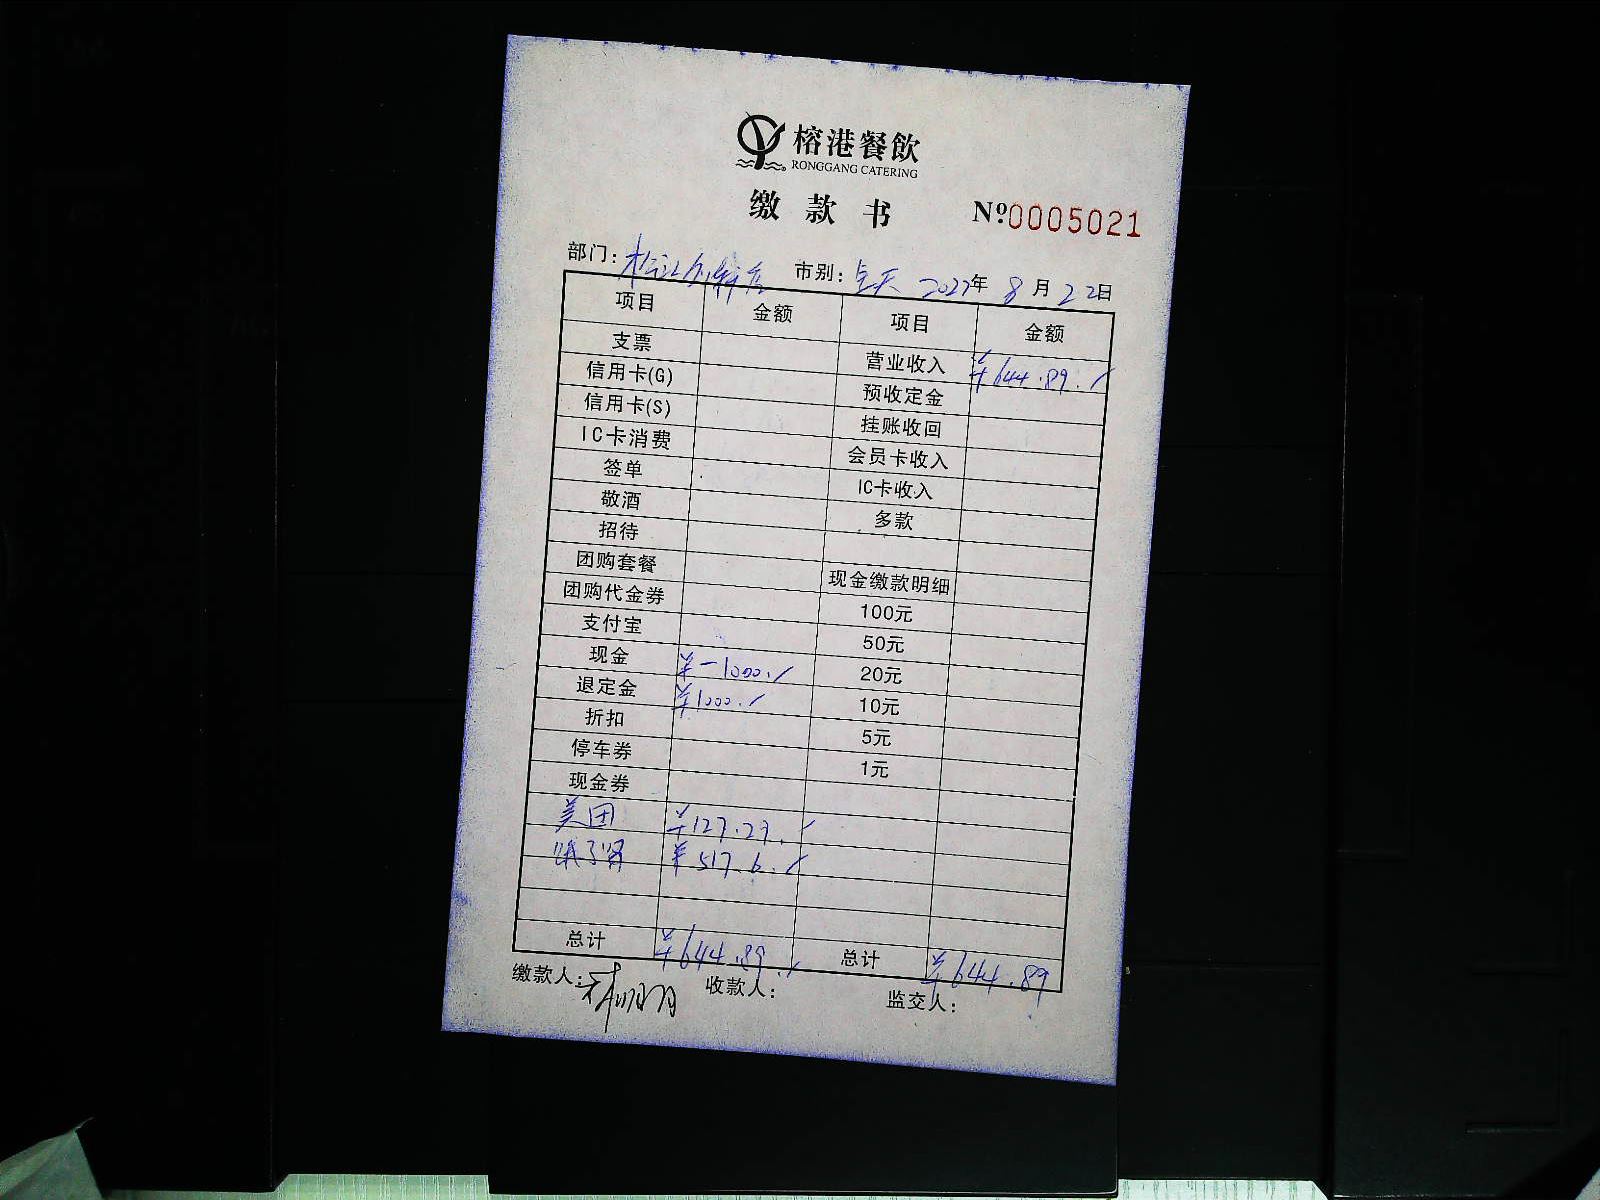 榕港餐飲
RONGGANG CATERING
缴款书 Nº0005021
部门: 松江 市别: 全天 2022年 8月22日
项目 金额 项目 金额
支票 营业收入 ¥644.89.
信用卡(G) 预收定金
信用卡(S) 挂账收回
IC卡消费 会员卡收入
签单 IC卡收入
敬酒 多款
招待
团购套餐 现金缴款明细
团购代金券 100元
支付宝 50元
现金 ¥-1000. 20元
退定金 ¥1000. 10元
折扣 5元
停车券 1元
现金券
美团 ¥127.29.
饿了 ¥517.6.
总计 ¥644.89. 总计 ¥644.89
缴款人: 收款人: 监交人: